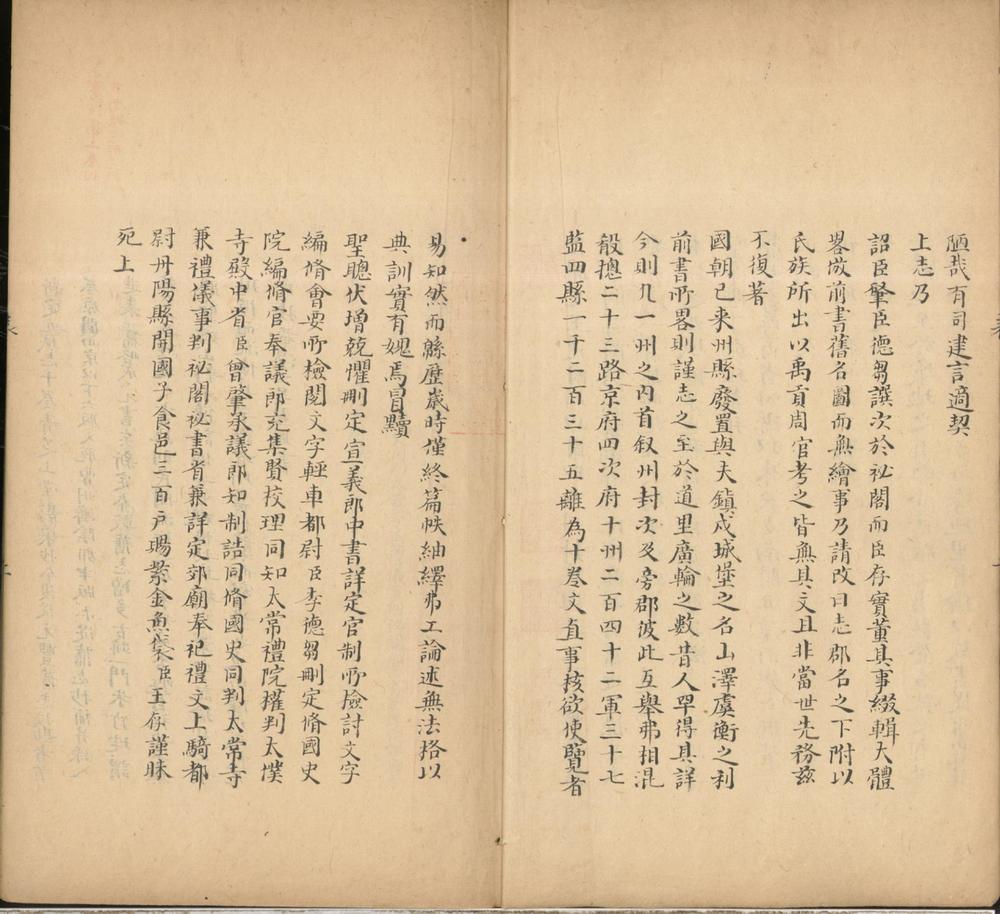 陋哉有司建言適契
上志乃
詔臣肇臣德芻譔次於祕閣而臣存實董其事綴輯大體
畧倣前書舊名圖而無繪事乃請改曰志郡名之下附以
氏族所出以禹貢周官考之皆無其文且非當世先務茲
不復著
國朝已來州縣廢置與夫鎮戍城堡之名山澤虞衡之利
前書所畧則謹志之至於道里廣輪之數昔人罕得其詳
今則凡一州之內首叙州封次及旁郡彼此互舉弗相混
殽揔二十三路京府四次府十州二百四十二軍三十七
監四縣一千二百三十五離為十卷文直事核欲使覽者
易知然而緜歷歲時僅終篇帙紬繹弗工論述無法格以
典訓實有媿焉冒黷
聖聰伏增兢懼刪定宣義郎中書詳定官制所檢討文字
編脩會要所檢閱文字輕車都尉臣李德芻刪定脩國史
院編脩官奉議郎充集賢校理同知太常禮院權判太僕
寺殿中省臣曾肇承議郎知制誥同脩國史同判太常寺
兼禮儀事判祕閣祕書省兼詳定郊廟奉祀禮文上騎都
尉丹陽縣開國子食邑三百戶賜紫金魚袋臣王存謹昧
死上